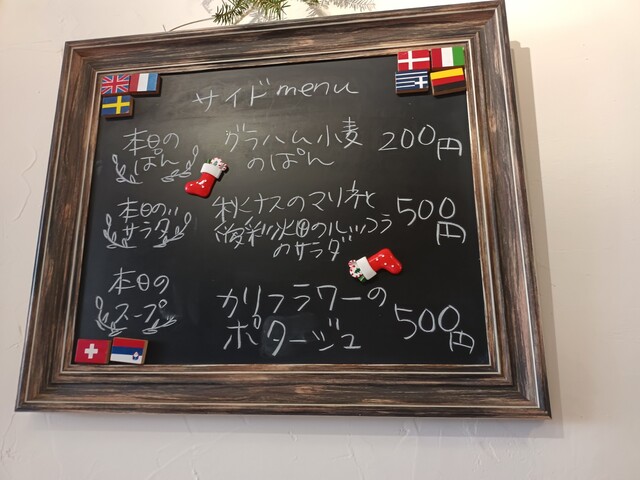 サイドmenu
本日の
ぱん
グラハム小麦
のぱん
200円
本日の
サラダ
秋ナスのマリネと
ルッコラ
のサラダ
500円
本日の
スープ
カリフラワーの
ポタージュ
500円